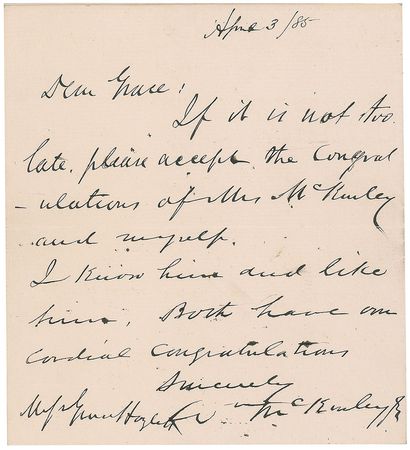 April 3/85
Dear Grace:
If it is not too
late, please accept the Congrat
-ulations of Mrs McKinley
and myself.
I know him and like
him. Both have our
Cordial Congratulations
Sincerely
W McKinley Jr
Miss Grace